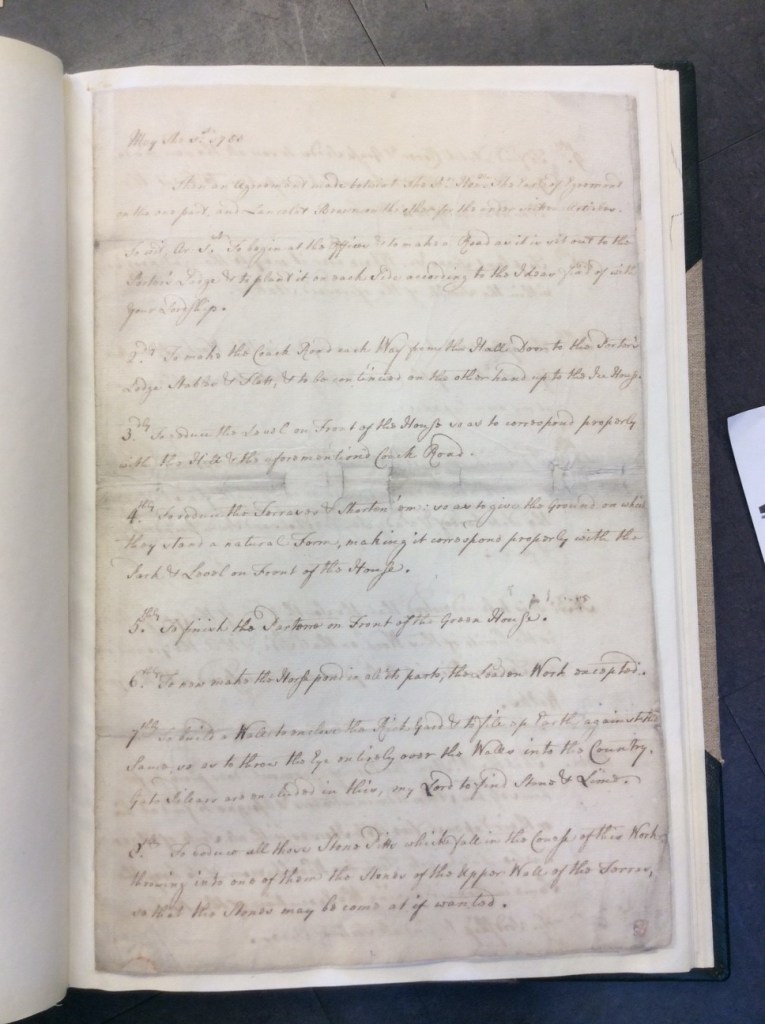 May the 1st 1753
Then an Agreement made between The Rt. Honrle the Earl of Egremont
on the one part, and Lancelot Brown on the Other for the under written Articles.
To wit, Ar. 1st. To begin at the Offices & to make a Road as it is set out to the
Porter's Lodge & to plant it on each Side according to the Ideas fix'd of with
Your Lordship.
2dly. To make the Coach Road each Way from the Hall Door, to the Porter's
Lodge & to be continued on the other hand up to the Ice House.
3dly. To reduce the Level on Front of the House so as to correspond properly
with the Hill & the aforementioned Coach Road.
4thly. To reduce the Terraces & Shorten 'em: so as to give the Ground on which
they stand a natural Form, making it correspond properly with the
Park & Level on Front of the House.
5thly. To finish the Parterre on Front of the Green House.
6thly. To new make the Horse pond in all its parts, the Leaden Work excepted.
7thly. To build a Wall to enclose the Rick Yard & to file up Earth against the
Same, so as to throw the Eye entirely over the Walls into the Country.
Gate Pilears are included in this, my Lord to find Stone & Lime.
8thly. To reduce all those Stone Pitts which fall in the Course of this Work
throwing into one of them the Stones of the Upper Wall of the Terras,
so that the Stones may be come at if wanted.